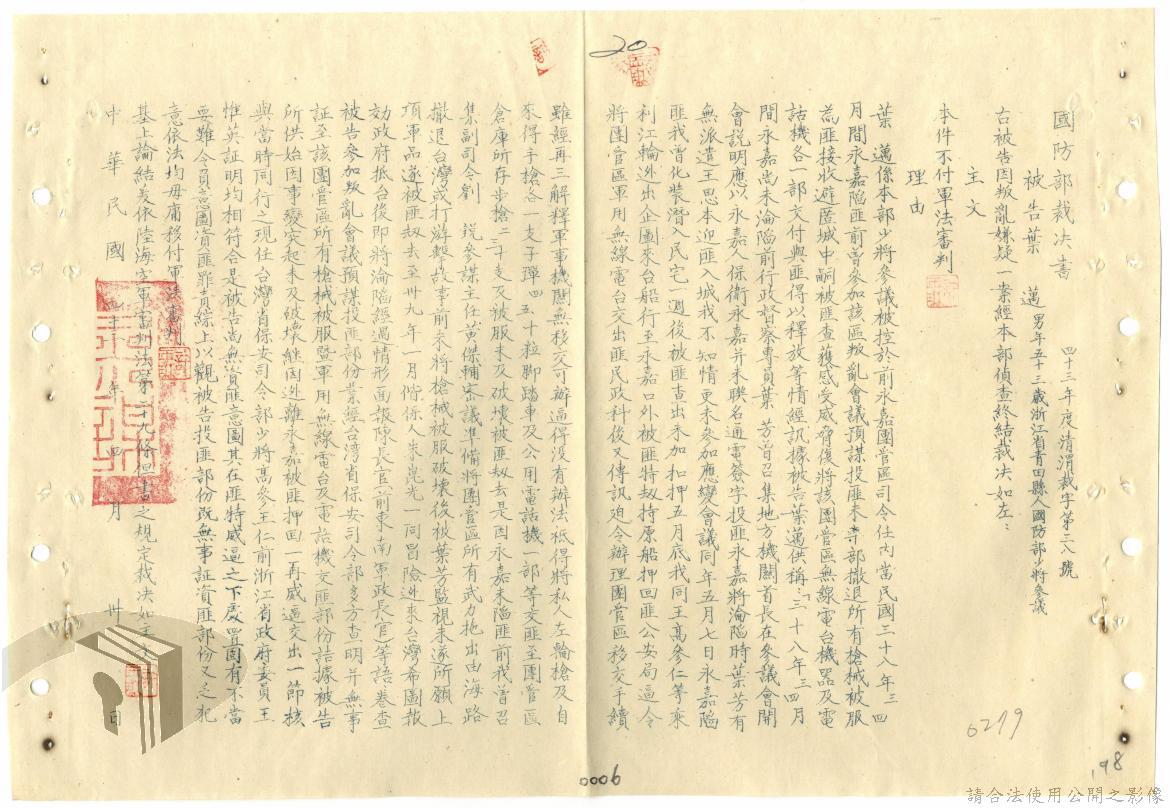 國防部裁決書
四十三年度清渭裁字第三八號
被告葉 邁 男年五十三歲浙江省青田縣人國防部少將參議
右被告因叛亂嫌疑一案經本部偵查終結裁決如左：
主文
本件不付軍法審判
理由
葉 邁係本部少將參議被控於前永嘉團管區司令任內當民國三十八年三四
月間永嘉陷匪前曾參加該區叛亂會議預謀投匪未率部撤退所有槍械被服
為匪接收避匿城中嗣被匪查獲感受威脅復將該團管區無線電台機器及電
話機各一部交付與匪得以釋放等情經訊據被告葉邁供稱：「三十八年三四月
間永嘉尚未淪陷前行政督察專員葉 芳曾召集地方機關首長在參議會開
會說明應以永嘉人保衛永嘉并未聯名通電簽字投匪永嘉將淪陷時葉芳有
無派遣王思本迎匪入城我不知情更未參加應變會議同年五月七日永嘉陷
匪我曾化裝潛入民宅一週後被匪查出參加扣押五月底我同王高參仁等乘
利江輪逃出企圖來台船行至永嘉口外被匪特劫持原船押回匪公安局逼令
將團管區軍用無線電台交出匪民政科後又傳訊迫令辦理團管區移交手續
雖經再三解釋軍事機關無移交可辦逼得沒有辦法祇得將私人左輪槍及自
來得手槍各一支子彈四五十粒腳踏車及公用電話機一部等交匪至團管區
倉庫所存步槍二三十支及被服未及破壞被匪劫去是因永嘉未陷匪前我曾召
集副司令劉 銳參謀主任黃傑輔密議準備將團管區所有武力拖出由海路
撤退台灣或打游擊故事前未將槍械被服破壞後被葉芳監視未遂所願上
項軍品遂被匪劫去至卅九年一月偕係人朱崑光一同冒險逃來台灣希圖報
効政府抵台後即將淪陷經過情形面報陳長官（前東南軍政長官）等語卷查
被告參加叛亂會議預謀投匪部份業經台灣省保安司令部多方查明并無事
証至該團管區所有槍械被服暨軍用無線電台及電話機交匪部份詰據被告
所供始因事變突起未及破壞繼因逃離永嘉被匪押回一再威逼交出一節核
與當時同行之現任台灣省保安司令部少將高參王仁前浙江省政府委員王
惟英証明均相符合是被告尚無資匪意圖其在匪特威逼之下處置固有不當
要難令負意圖資匪罪責綜上以觀被告投匪部份既無事証資匪部份又乏犯
意依法均毋庸移付軍法審判
基上論結爰依陸海空軍審判法第二十九條但書之規定裁決如主文
中華民國 年四月卅日
20
0279
198
0006
請合法使用公開之影像